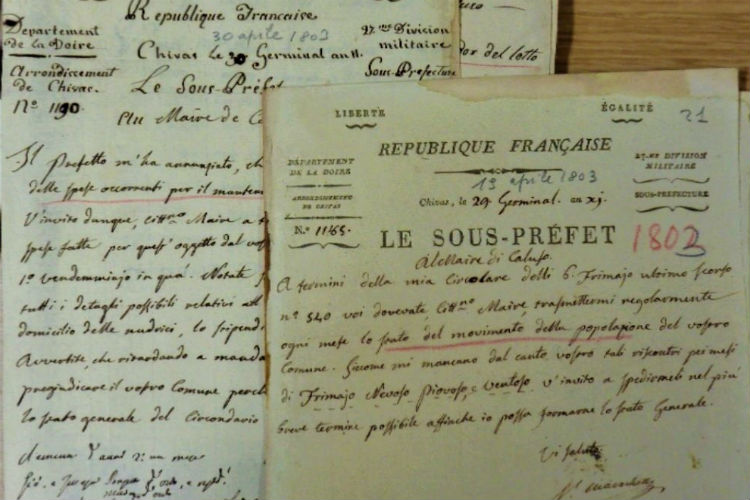 Republique Française
30 aprile 1803
Departement
de la Doire
27.me Division
militaire
Chivas le 30 Germinal an 11.
Arrondissement
de Chivas.
Sous-Prefecture
Le Sous-Préfet
N.o 1190
Au Maire de
Il Prefetto m'ha annunziato, ch
delle spese occorrenti per il mantem
V'invito dunque, Citt.no Maire a
spese fatte per quest'oggetto dal vos
1.o vendemmiajo in quà. Notate
tutti i detagli possibili relativi all
domicilio delle nudrici, lo stipendi
Avvertite, che ritardando a manda
pregiudicare il vostro Comune perch
lo stato generale del Circondario
dor del lotto
LIBERTÉ
ÉGALITÉ
21
REPUBLIQUE FRANÇAISE
DÉPARTEMENT
DE LA DOIRE
27.me DIVISION
MILITAIRE
19 aprile 1803
ARRONDISSEMENT
DE CHIVAS
Chivas, le 29 Germinal. an xj.
SOUS-PRÉFECTURE
N.o 1165.
LE SOUS-PRÉFET
1803
Al Maire di Caluso.
A termini della mia Circolare delli 6. Frimajo ultimo scorso
n.o 540 voi dovevate, Citt.no Maire, trasmettermi regolarmente
ogni mese lo stato del movimento della popolazione del vostro
Comune. Siccome mi mancano dal canto vostro tali riscontri pei mesi
di Frimajo Nevoso Piovoso, e Ventoso v'invito a spedirmeli nel più
breve termine possibile affinche io possa formarne lo stato Generale.
Vi saluto